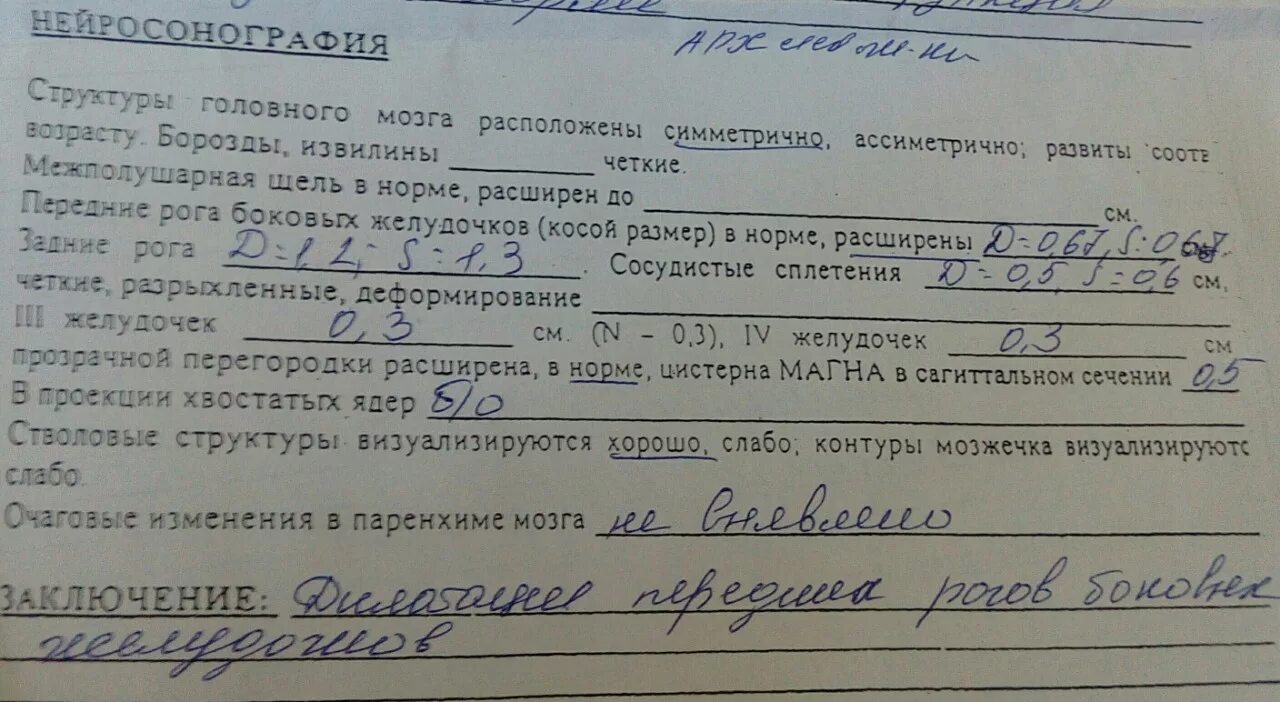 НЕЙРОСОНОГРАФИЯ
АРХ
Структуры головного мозга расположены симметрично, ассиметрично; развиты соотв
возрасту. Борозды, извилины ________ четкие.
Межполушарная щель в норме, расширен до ________ см.
Передние рога боковых желудочков (косой размер) в норме, расширены D=0,67, S=0,68.
Задние рога D=1,2; S=1,3. Сосудистые сплетения D=0,5, S=0,6 см,
четкие, разрыхленные, деформирование ________
III желудочек 0,3 см. (N – 0,3), IV желудочек 0,3 см
прозрачной перегородки расширена, в норме, цистерна МАГНА в сагиттальном сечении 0,5
В проекции хвостатых ядер б/о
Стволовые структуры визуализируются хорошо, слабо; контуры мозжечка визуализируютс
слабо.
Очаговые изменения в паренхиме мозга не выявлено
ЗАКЛЮЧЕНИЕ: Дилатация передних рогов боковых
желудочков